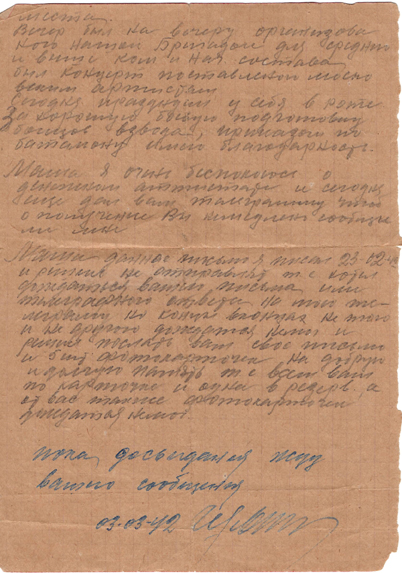 места.
Вечер был на вечеру организова
ного нашей Бригадой для средни
и выше ком и нач состава
был концерт поставленой моско
вским артистам
Сегодня празднуем у себя в роте
За хорошую боевую подготовку
бойцов взвода, приказом по
батальону имею благодарность.
Маша я очень беспокоюсь о
денежном аттестате и сегодня
еще дал вам телеграмму чтоб
о получение Вы немедлено сообщи
ли мне
Маша данное письмо я писал 23-02-4
и решил не отправлять т.к хотел
дождаться вашего письма или
телеграфного ответа на мои те-
леграммы но конца вот не того
и не другого дождатся не мог и
решил послать вам свое письмо
и фотокарточки на добрую
и долгую память т.е всем вам
по карточке и одна в резерв, а
от вас также фотокарточки
дождатся немог.
пока, досвидания жду
вашего сообщения
03-03-42